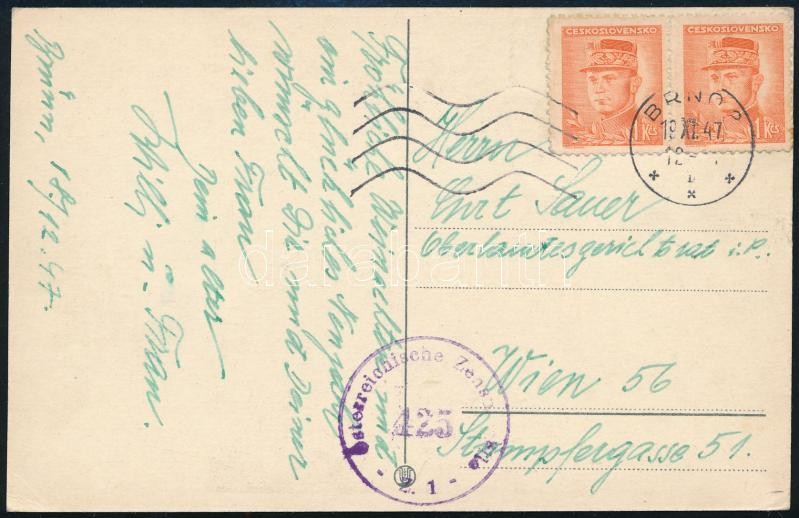 ČESKOSLOVENSKO ČESKOSLOVENSKO
1 Kčs 1 Kčs
BRNO 2
19 XII 47
Herrn
Curt Sauer
Oberlandesgerichtsrat i.P.
Wien 56
Stumpfergasse 51.
Österreichische Zensurstelle
425
- 2. 1 -
Brünn, 18./12.47.
Fröhliche Weihnachten und
ein glückliches Neujahr
wünscht Dir und Deiner
lieben Frau
Dein alter
Willi u. Frau.
darabanth